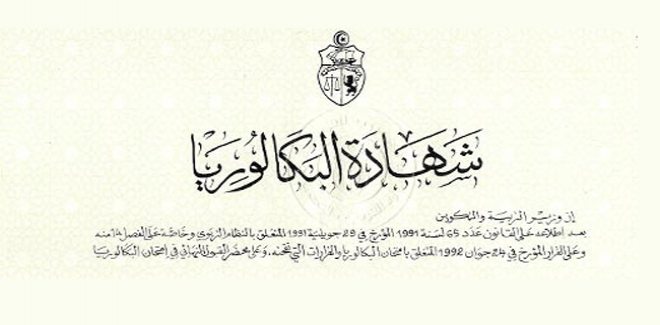 شَهَادَة البَكَالُورِيَا
إن وزير التربية والتكوين
بعد اطلاعه على القانون عدد 65 لسنة 1991 المؤرخ في 29 جويلية 1991 المتعلق بالنظام التربوي وخاصة على الفصل 14 منه
وعلى القرار المؤرخ في 24 جوان 1992 المتعلق بامتحان البكالوريا والقرارات التي نقحته. وعلى محضر القبول النهائي في امتحان البكالوريا